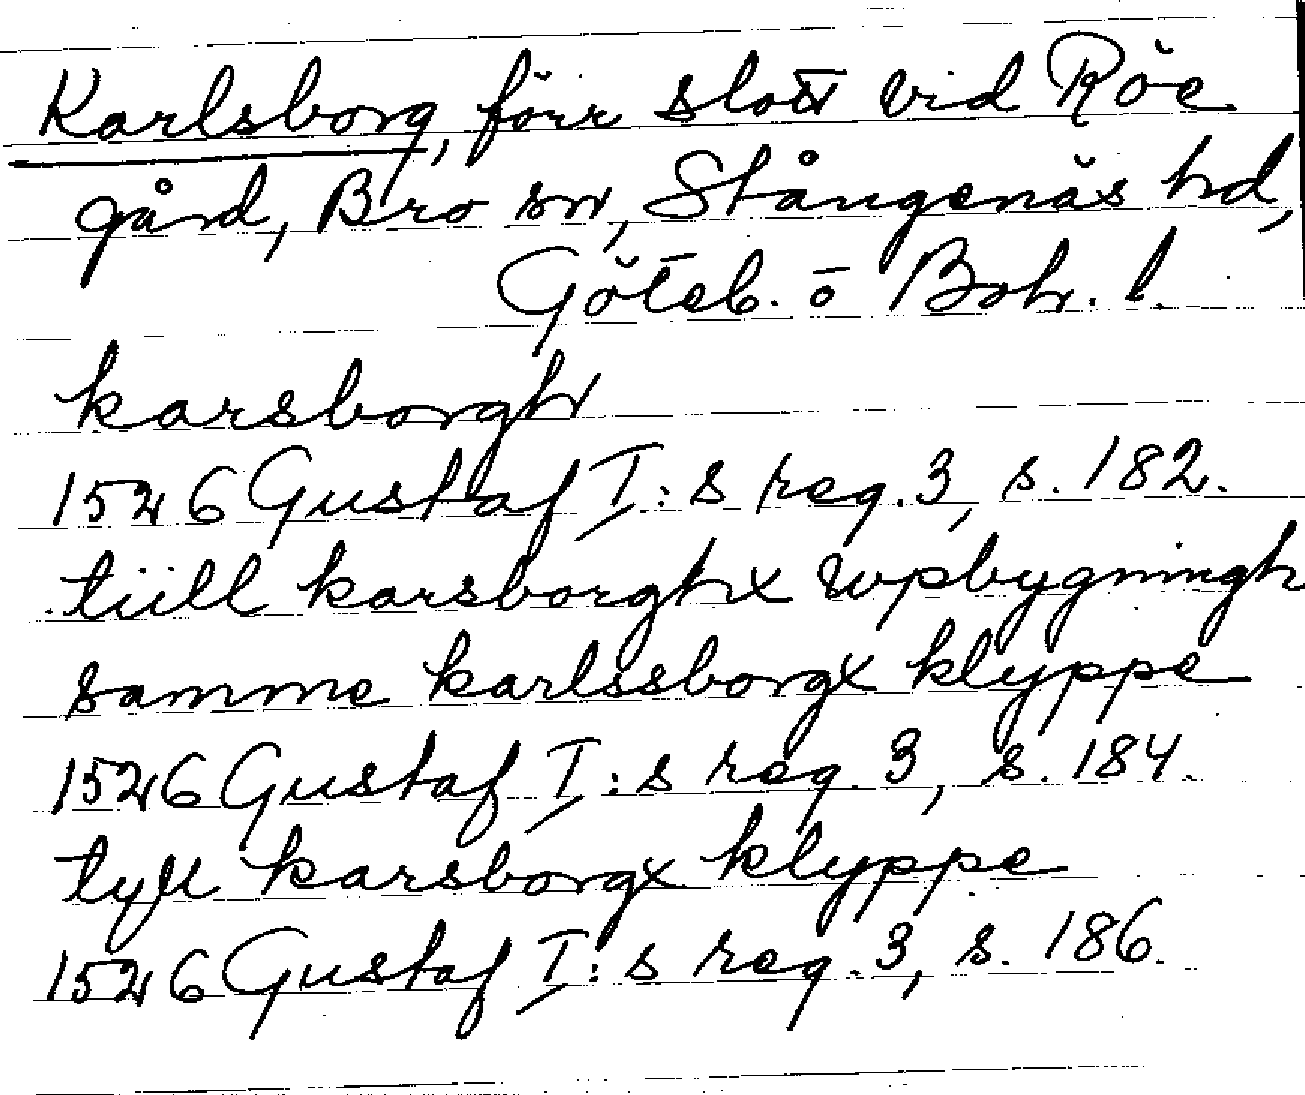 Karlsborg, förr slott vid Röe
gård, Bro sn, Stångenäs hd,
Göteb. o Boh. l.
karsborgh
1526 Gustaf I:s reg. 3, s. 182.
tiill karsborghx wpbygningh
samme karlssborgx klyppe
1526 Gustaf I:s reg. 3, s. 184.
tyll karsborgx klyppe
1526 Gustaf I:s reg. 3, s. 186.